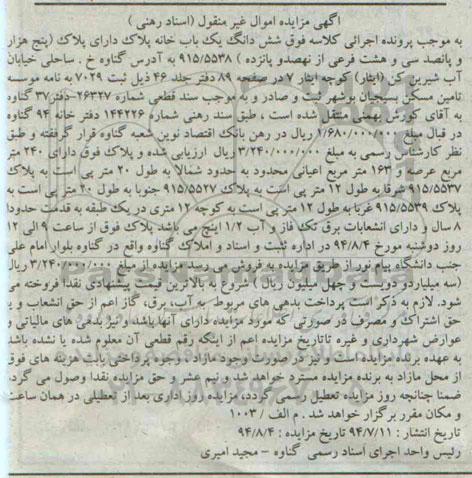 آگهی مزایده اموال غیر منقول (اسناد رهنی)
به موجب پرونده اجرائی کلاسه فوق شش دانگ یک باب خانه پلاک دارای پلاک (پنج هزار
و پانصد سی و هشت فرعی از نهصدو پانزده) ۹۱۵/۵۵۳۸ به آدرس گناوه خ . ساحلی خیابان
آب شیرین کن (ایثار) کوچه ایثار ۷ در صفحه ۸۹ دفتر جلد ۴۶ ذیل ثبت ۷۰۲۹ به نامه موسسه
تامین مسکن بسیجیان بوشهر ثبت و صادر و به موجب سند قطعی شماره ۲۶۳۲۷-دفتر۳۷ گناوه
به آقای کورش بهمنی منتقل شده است ، طبق سند رهنی شماره ۱۴۴۲۲۶ دفتر خانه ۹۴ گناوه
در قبال مبلغ ۱/۶۸۰/۰۰۰/۰۰۰ ریال در رهن بانک اقتصاد نوین شعبه گناوه قرار گرفته و طبق
نظر کارشناس رسمی به مبلغ ۳/۲۴۰/۰۰۰/۰۰۰ ریال ارزیابی شده و پلاک فوق دارای ۲۴۰ متر
مربع عرصه و ۱۶۳ متر مربع اعیانی محدود به حدود شمالا به طول ۲۰ متر پی است به پلاک
۹۱۵/۵۵۳۷ شرقا به طول ۱۲ متر پی است به پلاک ۹۱۵/۵۵۲۷ جنوبا به طول ۲۰ متر پی است به
پلاک ۹۱۵/۵۵۳۹ غربا به طول ۱۲ متر پی است به کوچه ۱۲ متری در یک طبقه به قدمت حدودا
۸ سال و دارای انشعابات برق تک فاز و آب ۱/۲ اینچ می باشد پلاک فوق از ساعت ۹ الی ۱۲
روز دوشنبه مورخ ۹۴/۸/۴ در اداره ثبت و اسناد و املاک گناوه واقع در گناوه بلوار امام علی
جنب دانشگاه پیام نور از طریق مزایده به فروش می رسد مزایده از مبلغ ۳/۲۴۰/۰۰۰/۰۰۰ ریال
(سه میلیاردو دویست و چهل میلیون ریال) شروع به بالاترین قیمت پیشنهادی نقدا فروخته می
شود. لازم به ذکر است پرداخت بدهی های مربوط به آب، برق، گاز اعم از حق انشعاب و یا
حق اشتراک و مصرف در صورتی که مورد مزایده دارای آنها باشد و نیز بدهی های مالیاتی و
عوارض شهرداری و غیره تاتاریخ مزایده اعم از اینکه رقم قطعی آن معلوم شده یا نشده باشد
به عهده برنده مزایده است و نیز در صورت وجود مازاد ، وجوه پرداختی بابت هزینه های فوق
از محل مازاد به برنده مزایده مسترد خواهد شد و نیم عشر و حق مزایده نقدا وصول می گردد.
ضمنا چنانچه روز مزایده تعطیل رسمی گردد، مزایده روز اداری بعد از تعطیلی در همان ساعت
و مکان مقرر برگزار خواهد شد . م الف / ۱۰۰۳
تاریخ انتشار : ۹۴/۷/۱۱ تاریخ مزایده : ۹۴/۸/۴
رئیس واحد اجرای اسناد رسمی گناوه – مجید امیری